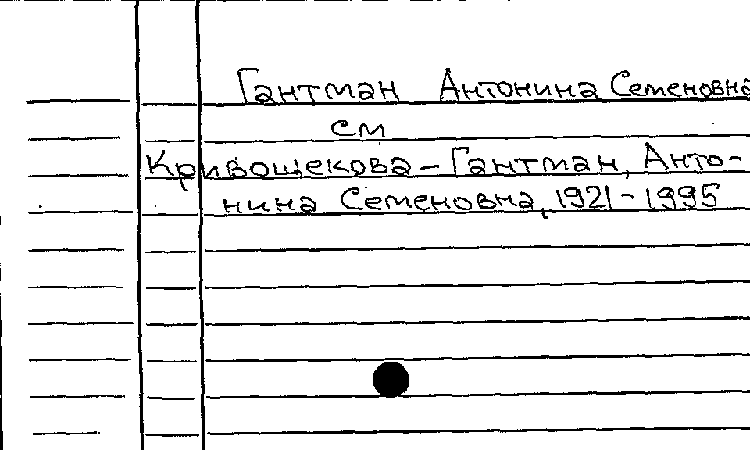 Гантман Антонина Семеновна
см
Кривощекова-Гантман, Анто-
нина Семеновна, 1921-1995